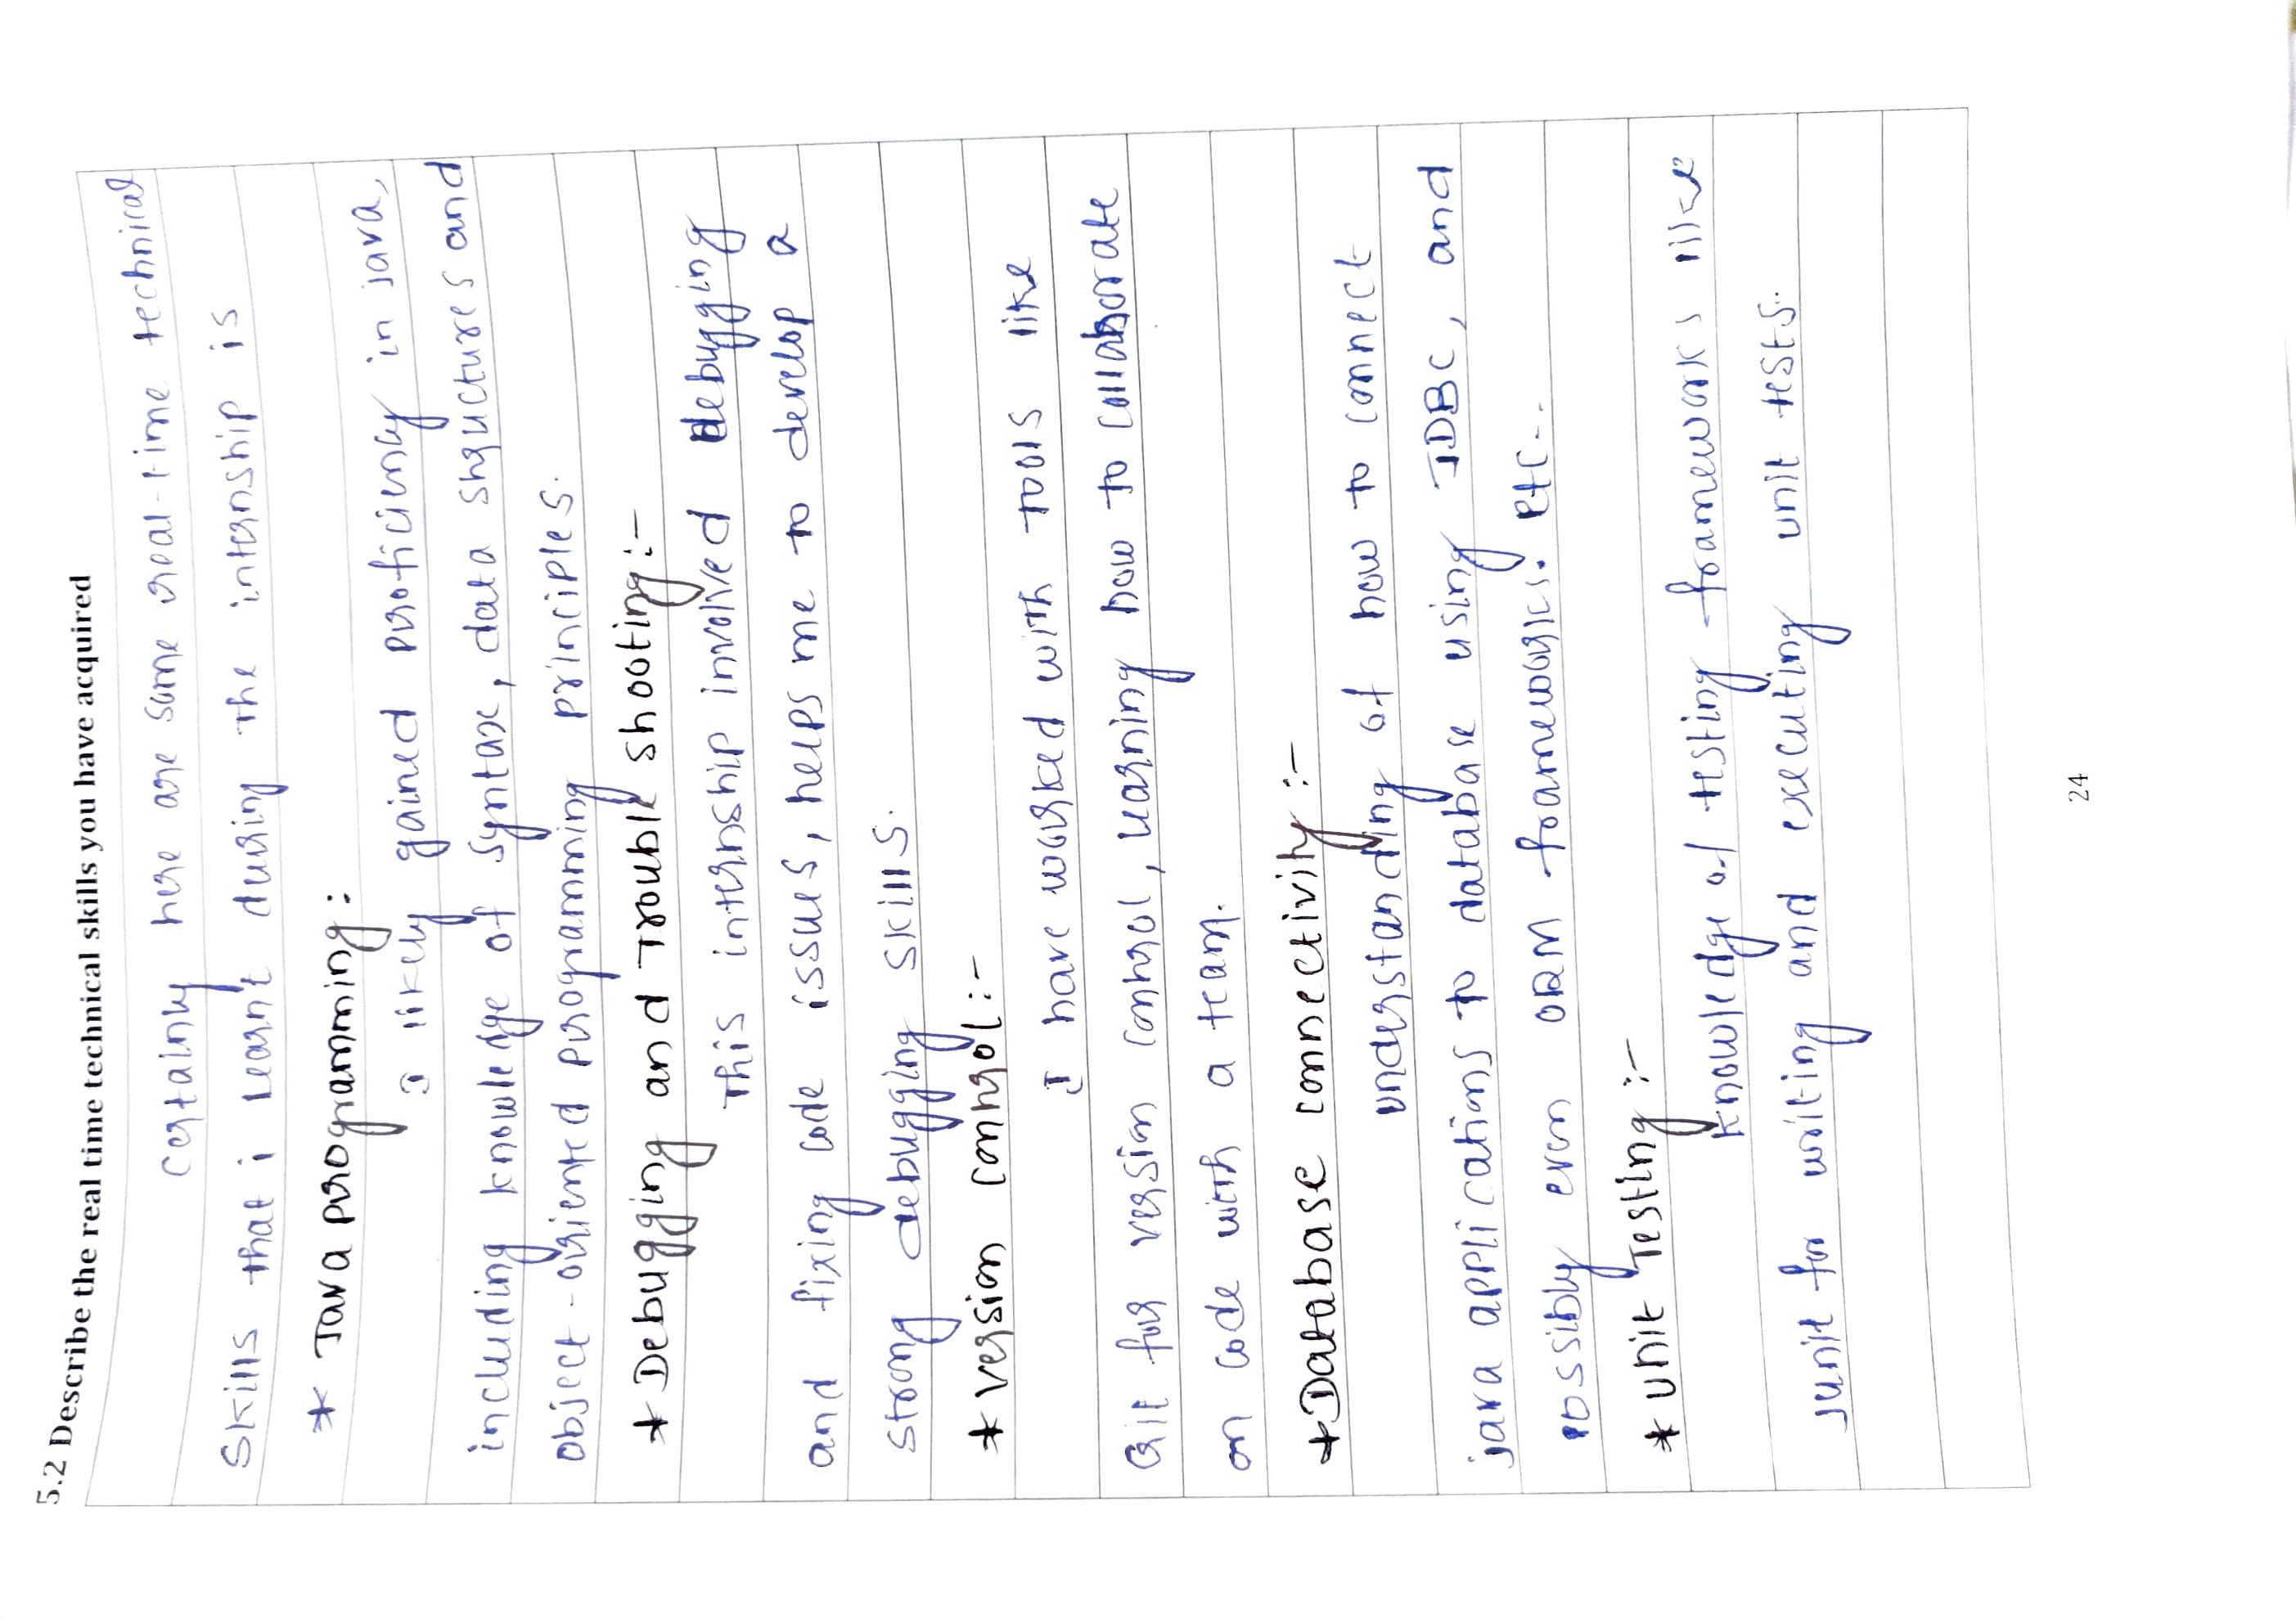 5.2 Describe the real time technical skills you have acquired
certainly here are some real-time technical
skills that i learnt during the internship is
* Java programming:
I likely gained proficiency in java,
including knowledge of syntax, data structures and
object-oriented programming principles.
* Debugging and Trouble shooting:-
This internship involved debugging
and fixing code issues, helps me to develop a
strong debugging skills.
* version control:-
I have worked with tools like
Git for version control, learning how to collaborate
on code with a team.
* Database connectivity:-
understanding of how to connect
java applications to database using JDBC, and
possibly even ORM frameworks. etc...
* unit Testing:-
knowledge of testing frameworks like
junit for writing and executing unit tests.
24